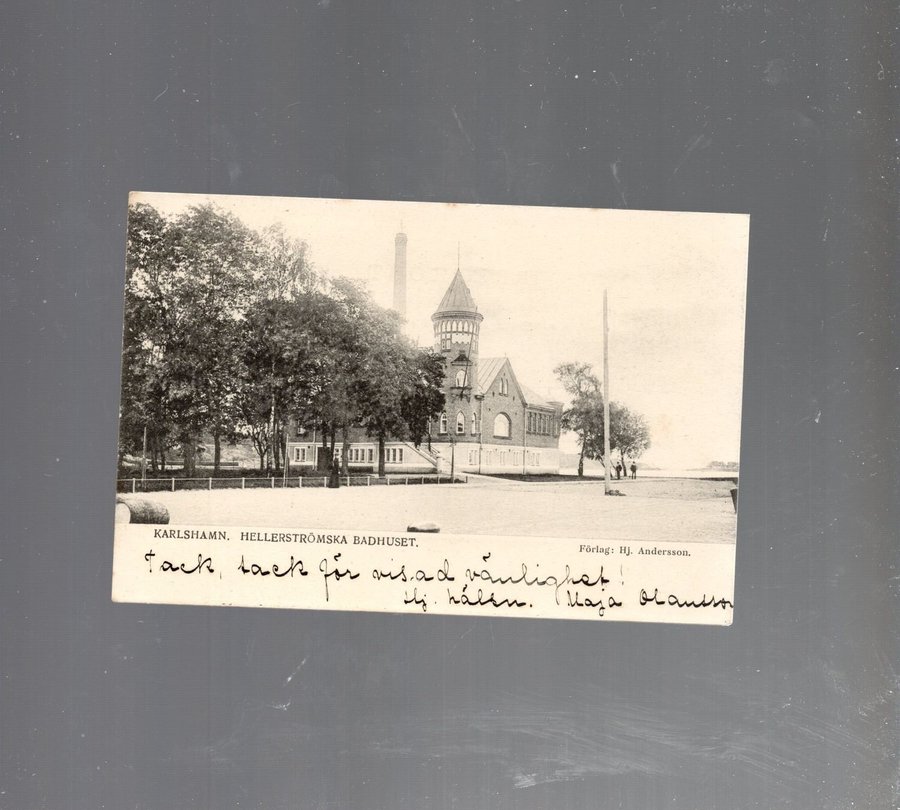 KARLSHAMN. HELLERSTRÖMSKA BADHUSET.
Förlag: Hj. Andersson.
Tack, tack för visad vänlighet!
Hj. hälsn. Maja Olausson